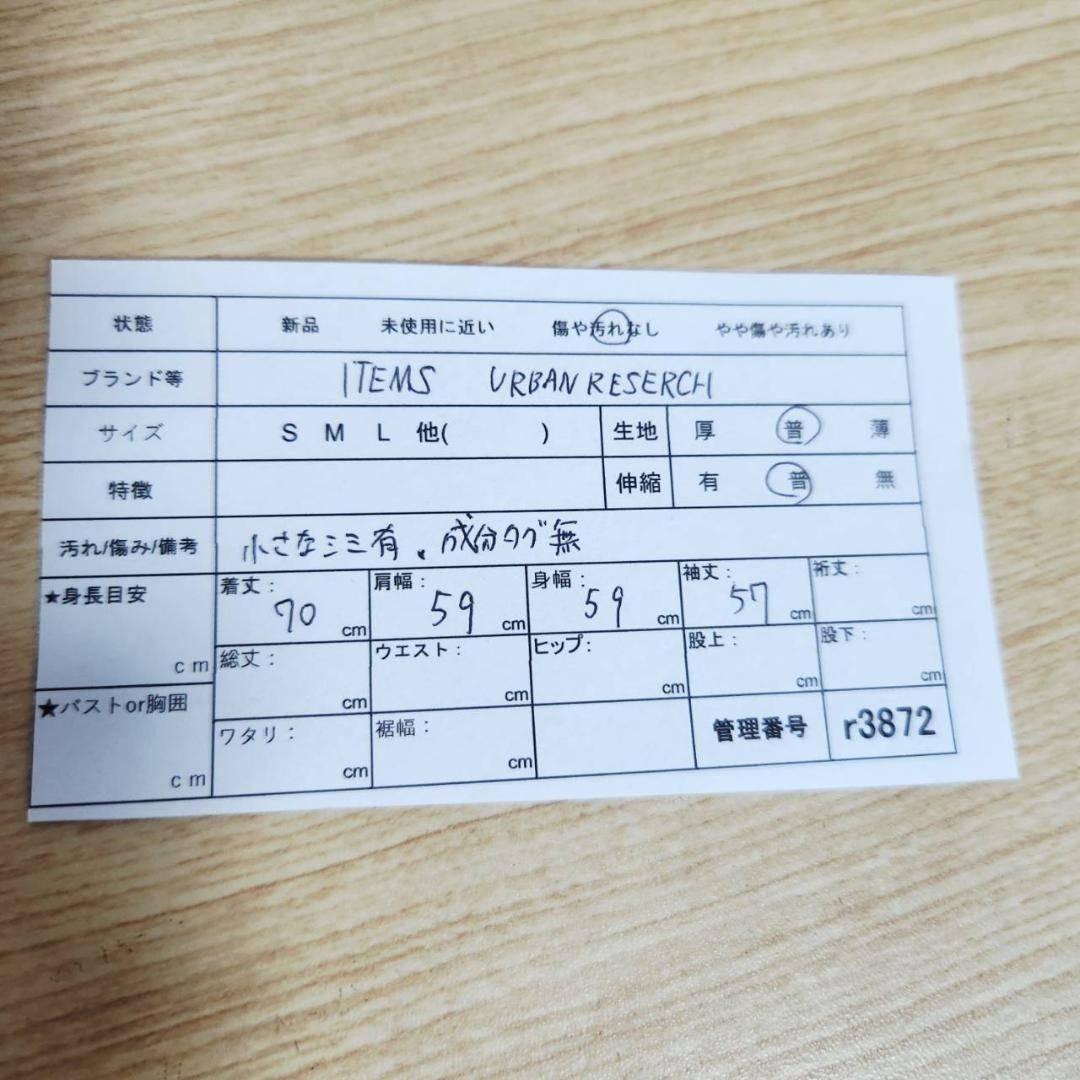 状態 新品 未使用に近い 傷や汚れなし やや傷や汚れあり
ブランド等 ITEMS URBAN RESERCH
サイズ S M L 他( ) 生地 厚 普 薄
特徴 伸縮 有 普 無
汚れ/傷み/備考 小さなシミ有. 成分タグ無
★身長目安 cm 着丈: 70 cm 肩幅: 59 cm 身幅: 59 cm 袖丈: 57 cm 裄丈: cm
総丈: cm ウエスト: cm ヒップ: cm 股上: cm 股下: cm
★バストor胸囲 cm ワタリ: cm 裾幅: cm 管理番号 r3872